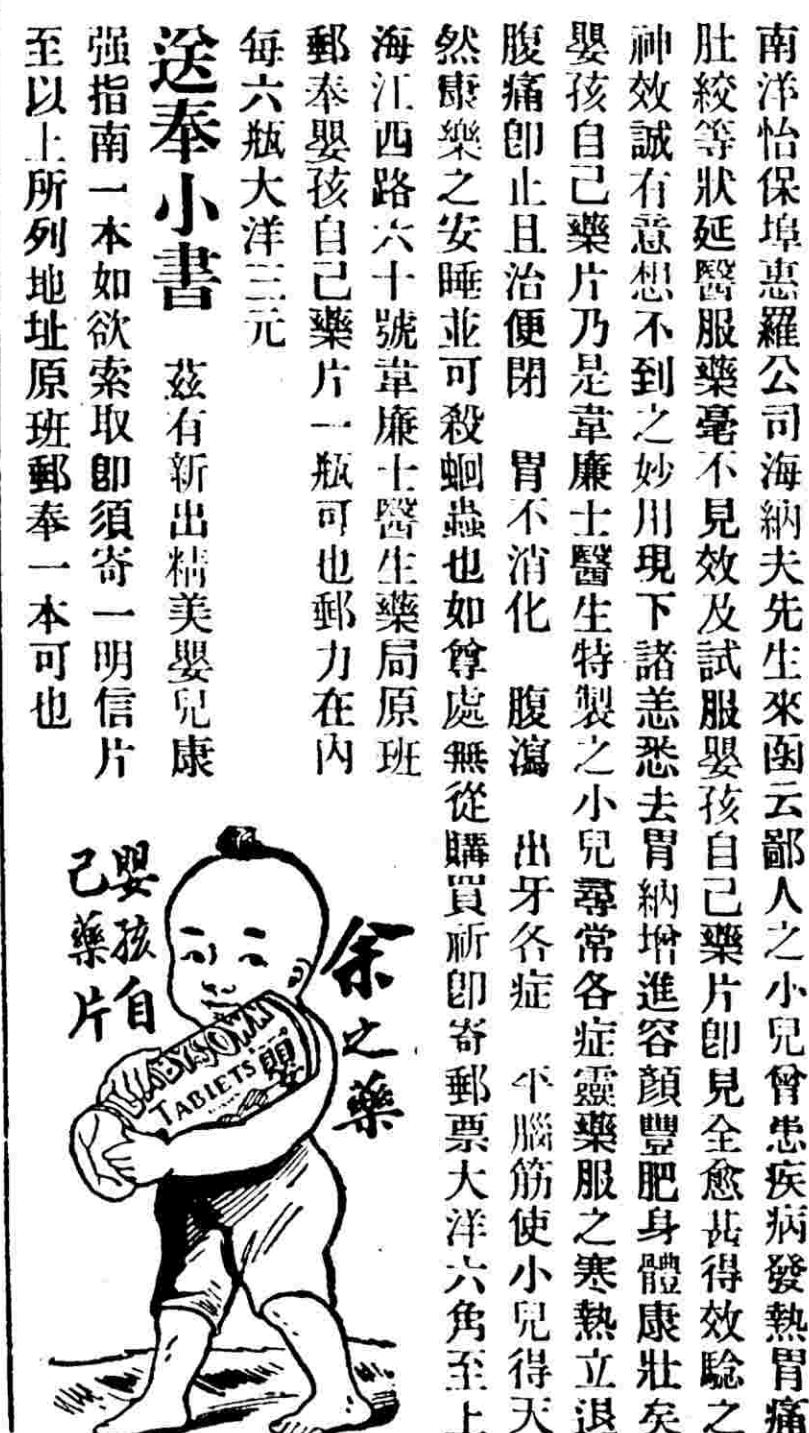 南洋怡保埠惠羅公司海納夫先生來函云鄙人之小兒曾患疾病發熱胃痛
肚絞等狀延醫服藥毫不見效及試服嬰孩自己藥片卽見全愈甚得效驗之
神效誠有意想不到之妙用現下諸恙悉去胃納增進容顏豐肥身體康壯矣
嬰孩自己藥片乃是韋廉士醫生特製之小兒尋常各症靈藥服之寒熱立退
腹痛卽止且治便閉　胃不消化　腹瀉　出牙各症　平腦筋使小兒得天
然康樂之安睡並可殺蛔蟲也如尊處無從購買祈卽寄郵票大洋六角至上
海江西路六十號韋廉士醫生藥局原班
郵奉嬰孩自己藥片一瓶可也郵力在內
每六瓶大洋三元
送奉小書　茲有新出精美嬰兒康
强指南一本如欲索取卽須寄一明信片
至以上所列地址原班郵奉一本可也
余之藥
嬰孩自
己藥片
BABY'S OWN
TABLETS
嬰